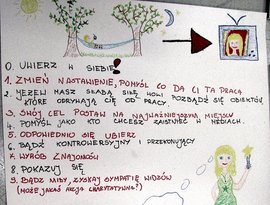 0. UWIERZ W SIEBIE!
1. ZMIEŃ NASTAWIENIE, POMYŚL CO DA CI TA PRACA
2. JEŻELI MASZ SŁABĄ SIŁĘ WOLI
KTÓRE ODRYWAJĄ CIĘ OD PRACY. POZBĄDŹ SIĘ OBIEKTÓW,
3. SWÓJ CEL POSTAW NA NAJWAŻNIEJSZYM MIEJSCU
4. POMYŚL JAKO KTO CHCESZ ZAISTNIEĆ W MEDIACH.
5. ODPOWIEDNIO SIĘ UBIERZ
6. BĄDŹ KONTROWERSYJNY I PRZEKONUJĄCY
7. WYRÓB ZNAJOMKÓW
8. POKAZUJ SIĘ
9. BĄDŹ MIŁY, ZYSKAJ SYMPATIĘ WIDZÓW
(MOŻE JAKAŚ AKCJA CHARYTATYWNA?)